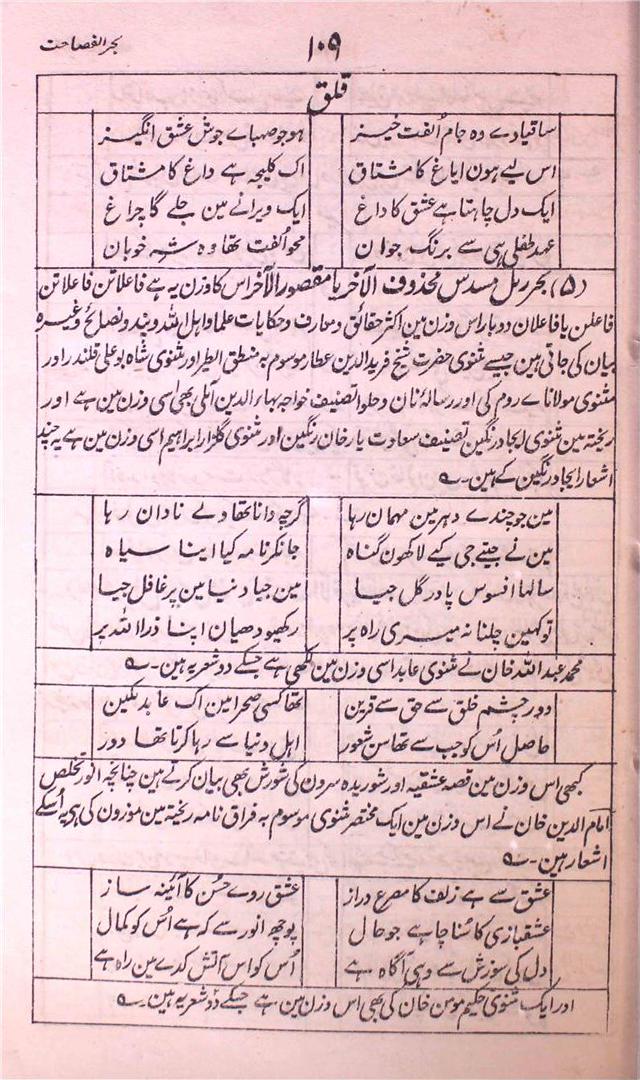 بحر الفصاحت
۱۰۹
قلق
ساقیا دے وہ جام اُلفت خیز ہو جو صہباے جوش عشق انگیز
اس لیے ہون ایاغ کا مشتاق اک کلیجہ ہے داغ کا مشتاق
ایک دل چاہتا ہے عشق کا داغ ایک ویرانے مین جلے گا چراغ
عہد طفلی ہی سے برنگ جوان محو اُلفت تھا وہ شہ خوبان
(۵) بحر رمل مسدس محذوف الآخر یا مقصور الآخر اس کا وزن یہ ہے فاعلاتن فاعلاتن
فاعلن یا فاعلان دوبار اس وزن مین اکثر حقائق و معارف و حکایات علما و اہل اللہ و پند و نصائح وغیرہ
بیان کی جاتی ہین جیسے مثنوی حضرت شیخ فرید الدین عطار موسوم بہ منطق الطیر اور مثنوی شاہ بو علی قلندر اور
مثنوی مولانا ے روم کی اور رسالۂ نان و حلوا تصنیف خواجہ بہاء الدین آملی بھی اسی وزن مین ہے اور
ریختہ مین مثنوی ایجاد رنگین تصنیف سعادت یار خان رنگین اور مثنوی گلزار ابراہیم اسی وزن مین ہے یہ چند
اشعار ایجاد رنگین کے ہین۔ ؎
مین جو چندے دہر مین مہمان رہا گرچہ دانا تھا ولے نادان رہا
مین نے جیتے جی کیے لاکھون گناہ جانکر نامہ کیا اپنا سیاہ
سالہا افسوس پا در گل جیا مین جیا دنیا مین پر غافل جیا
تو کہین چلنا نہ میری راہ پر رکھیو دھیان اپنا ذرا اللہ پر
محمد عبد اللہ خان نے مثنوی عابد اسی وزن مین لکھی ہے جسکے دو شعر یہ ہین۔ ؎
دور چشم خلق سے حق سے قرین تھا کسی صحرا مین اک عابد مکین
حاصل اُس کو جب سے تھا سن شعور اہل دنیا سے رہا کرتا تھا دور
کبھی اس وزن مین قصہ عشقیہ اور شوریدہ سرون کی شورش بھی بیان کرتے ہین چنانچہ انور تخلص
امام الدین خان نے اس وزن مین ایک مختصر مثنوی موسوم بہ فراق نامہ ریختہ مین موزون کی ہی یہ اُسکے
اشعار ہین۔ ؎
عشق سے ہے زلف کا مصرع دراز عشق روے حُسن کا آئینہ ساز
عشقبازی کا سُنا چاہے جو حال پوچھ انور سے کہ ہے اُس کو کمال
دل کی سوزش سے وہی آگاہ ہے اُس کو اس آتش کدے مین راہ ہے
اور ایک مثنوی حکیم مومن خان کی بھی اس وزن مین ہے جسکے دو شعر یہ ہین۔ ؎